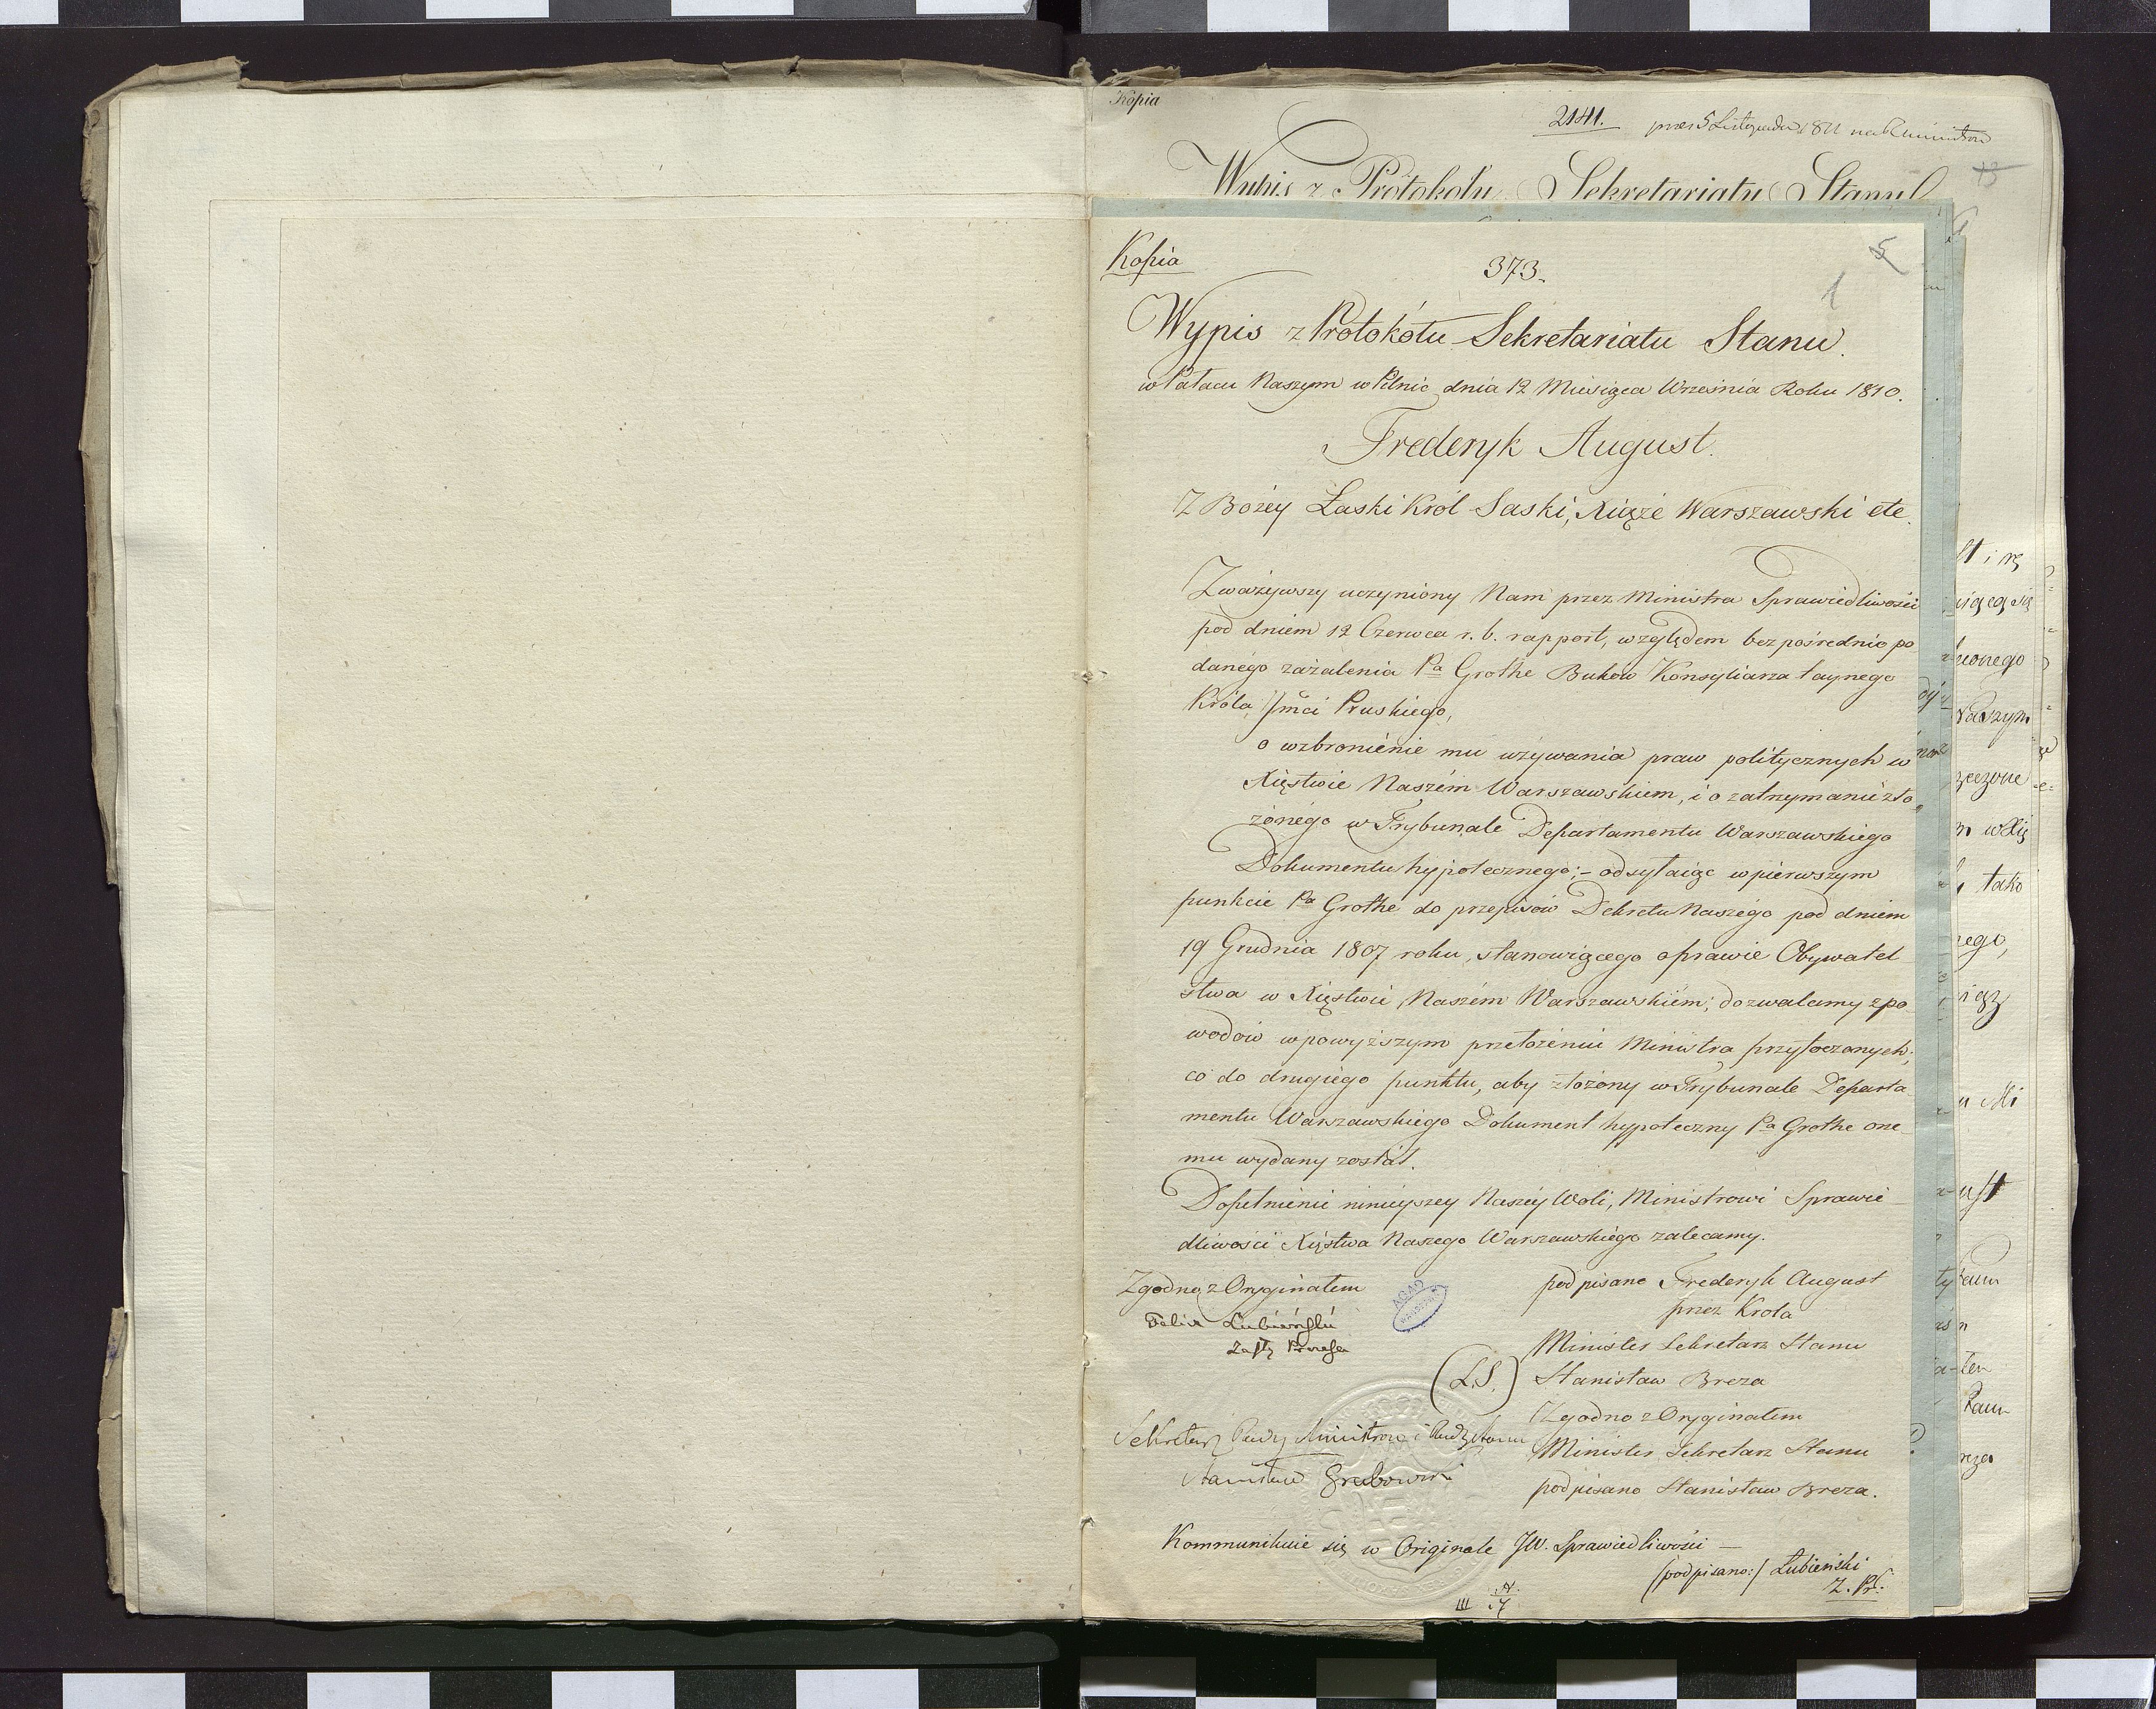 Kopia
2141. 5 Listopada 1811
13
Wypis z Protokołu Sekretariatu Stanu
Kopia
373.
5
1
Wypis z Protokółu Sekretariatu Stanu.
w Pałacu Naszym w Pilnic dnia 12 Miesiąca Września Roku 1810.
Frederyk August.
Z Bożey Łaski Król Saski, Xiąże Warszawski etc.
Zważywszy uczyniony Nam przez Ministra Sprawiedliwości
pod dniem 12 Czerwca r. b. rapport, względem bezpośrednio po
danégo zażalenia Pa Grothe Bukow Konsyliarza taynego
Króla Jmci Pruskiego,
o wzbronienie mu używania praw politycznych w
Xięstwie Naszém Warszawskiem, i o zatrzymanie zło
żonégo w Trybunale Departamentu Warszawskiego
Dokumentu hypotecznego; - odsyłaiąc w pierwszym
punkcie Pa Grothe do przepisów Dekretu Naszégo pod dniem
19 Grudnia 1807 roku, stanowiącego o prawie Obywatel
stwa w Xięstwie Naszém Warszawskiém; dozwalamy z po
wodów w powyższym przełożeniu Ministra przytoczonych,
co do drugiego punktu, aby złożony w Trybunale Departa
mentu Warszawskiego Dokument hypoteczny Pa Grothe one
mu wydany został.
Dopełnienie ninieyszey Naszéy Woli, Ministrowi Sprawie
dliwości Xięstwa Naszego Warszawskiégo zalecamy.
Zgodno z Oryginałem
Felix Łubieński
Zastę Prezesa
podpisano Frederyk August
przez Króla
Minister Sekretarz Stanu
(L.S.) Stanisław Breza
Zgodno z Oryginałem
Minister Sekretarz Stanu
podpisano Stanisław Breza.
Sekretarz Rady Ministrow i Rady Stanu
Stanisław Grabowski
Kommunikuie się w Originale JW. Sprawiedliwości —
(podpisano:) Łubieński
Z. Pr.
AGAD